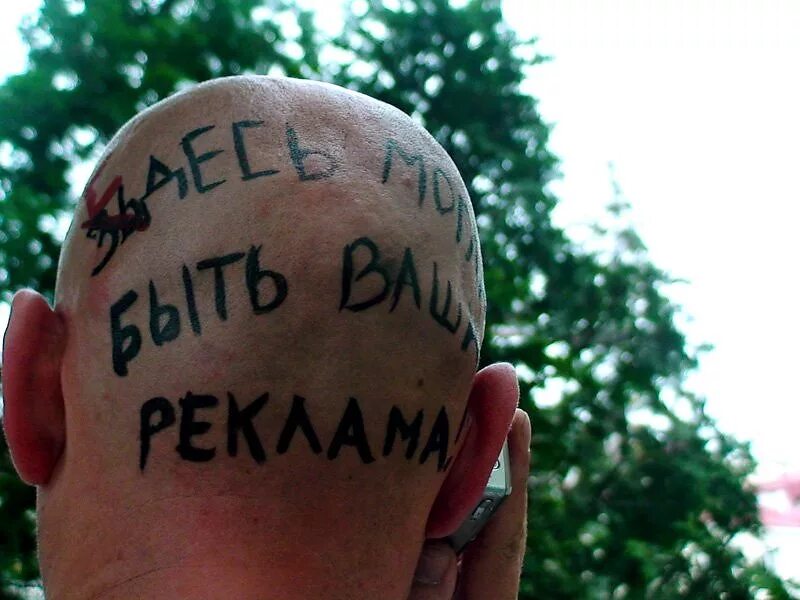 ЗДЕСЬ МОГЛА
БЫТЬ ВАША
РЕКЛАМА!